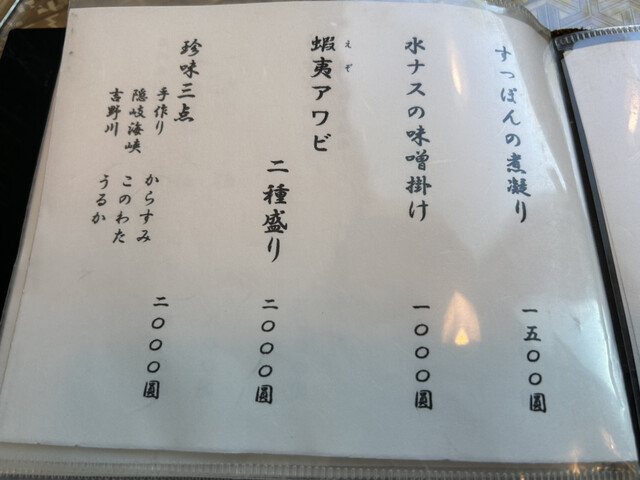 すっぽんの煮凝り 一五〇〇圓
水ナスの味噌掛け 一〇〇〇圓
蝦夷アワビ
えぞ
二種盛り 二〇〇〇圓
珍味三点
手作り からすみ 二〇〇〇圓
隠岐海峡 このわた
吉野川 うるか